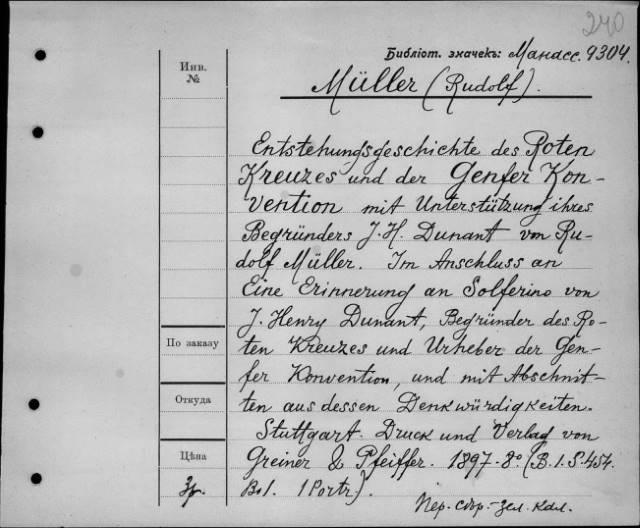 240
Библіот. значекъ: Манасс. 9304.
Инв.
№
Müller (Rudolf).
Entstehungsgeschichte des Roten
Kreuzes und der Genfer Kon-
vention mit Unterstützung ihres
Begründers J. H. Dunant von Ru-
dolf Müller. Im Anschluss an
Eine Erinnerung an Solferino von
J. Henry Dunant, Begründer des Ro-
ten Kreuzes und Urheber der Gen-
По заказу
fer Konvention, und mit Abschnit-
Откуда
ten aus dessen Denkwürdigkeiten.
Stuttgart. Druck und Verlag von
Цѣна
Greiner & Pfeiffer. 1897. 8° (B. 1. S. 454.
3р.
Bd. 1 Portr).
Пер. сбор.-зел. кдл.